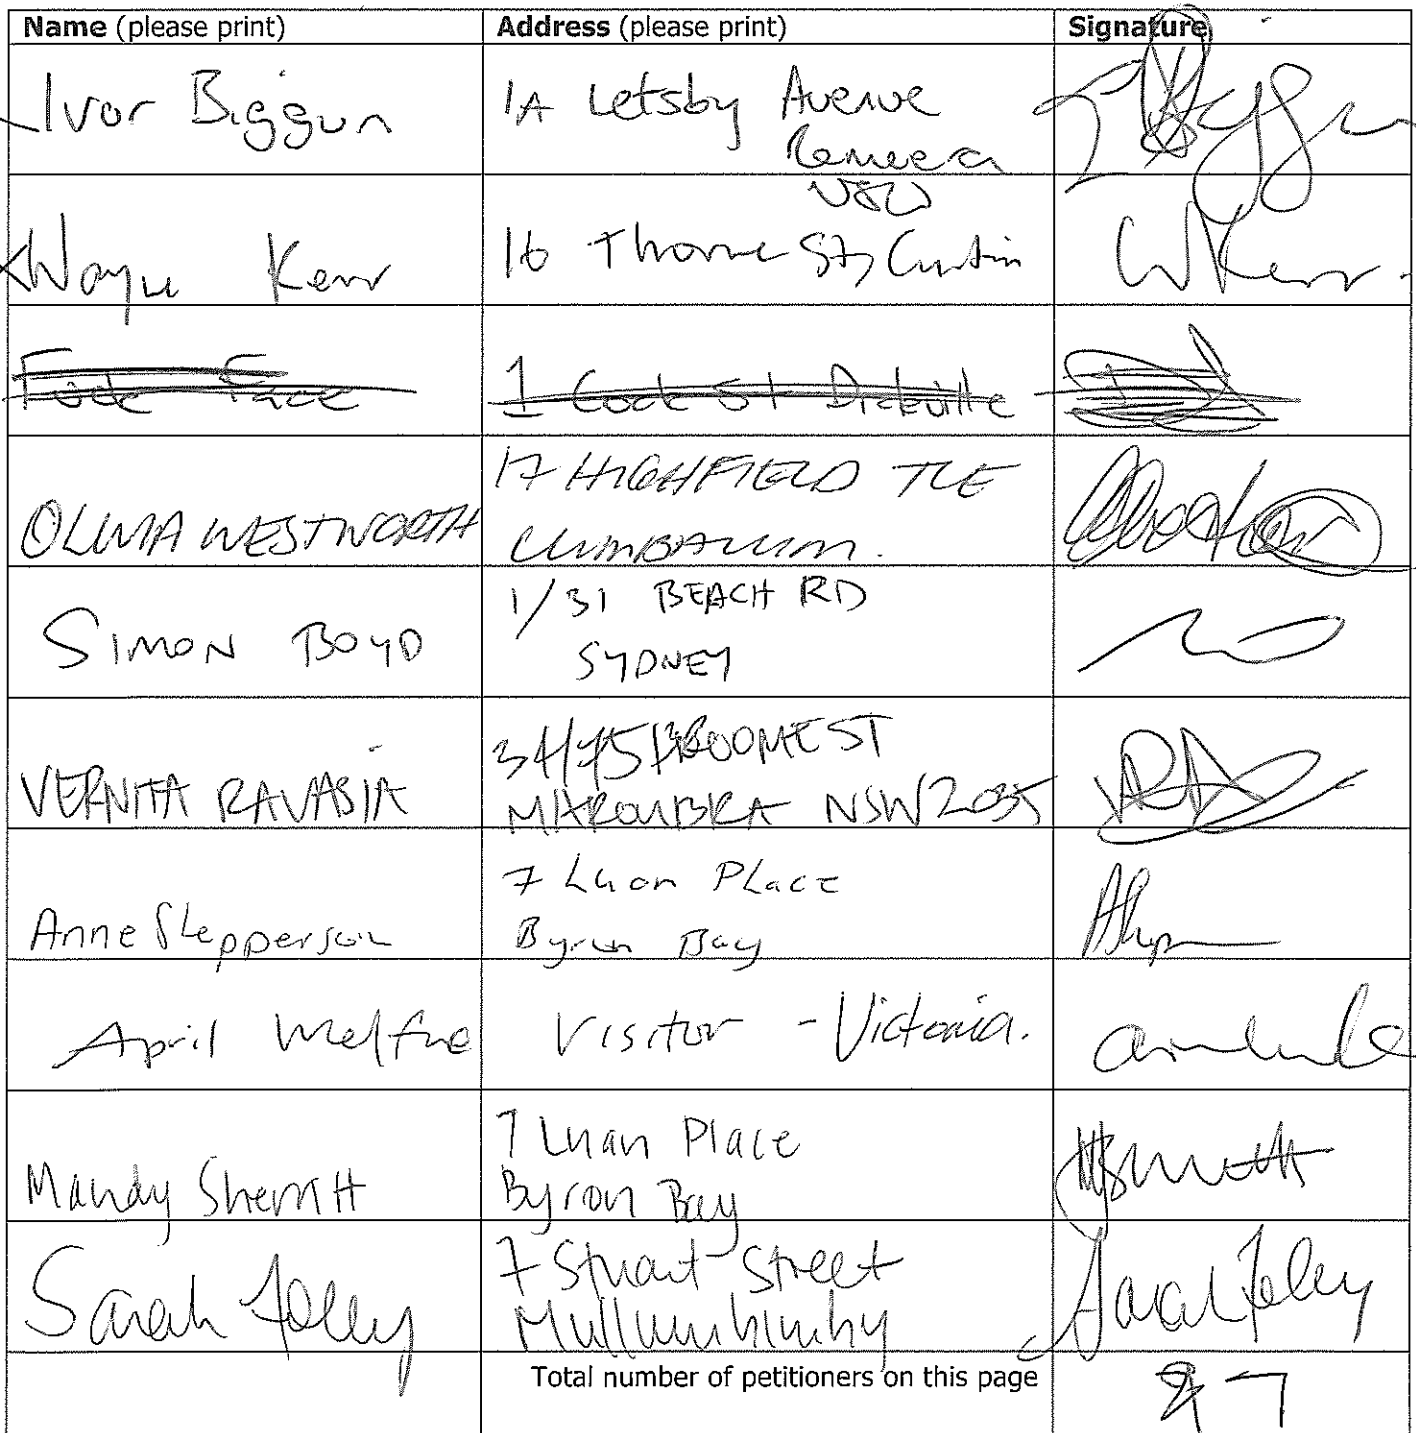 Name (please print) Address (please print) Signature
Ivor Biggun 1A Letsby Avenue
NSW
Wayne Kerr 16 Thorne St, Curtin W Kerr.
Fuck Face 1 Cock St Dickville
OLIVIA WESTWORTH 17 HIGHFIELD TCE
CUMBALUM.
SIMON BOYD 1/31 BEACH RD
SYDNEY
VERNITA RAVASIA BROOME ST
MAROUBRA NSW 2035
Anne Shepperson 7 Luan Place
Byron Bay
April Visitor - Victoria.
Mandy Sherritt 7 Luan Place
Byron Bay
Sarah Foley 7 Stuart Street Sarah Foley
Mullumbimby
Total number of petitioners on this page 7